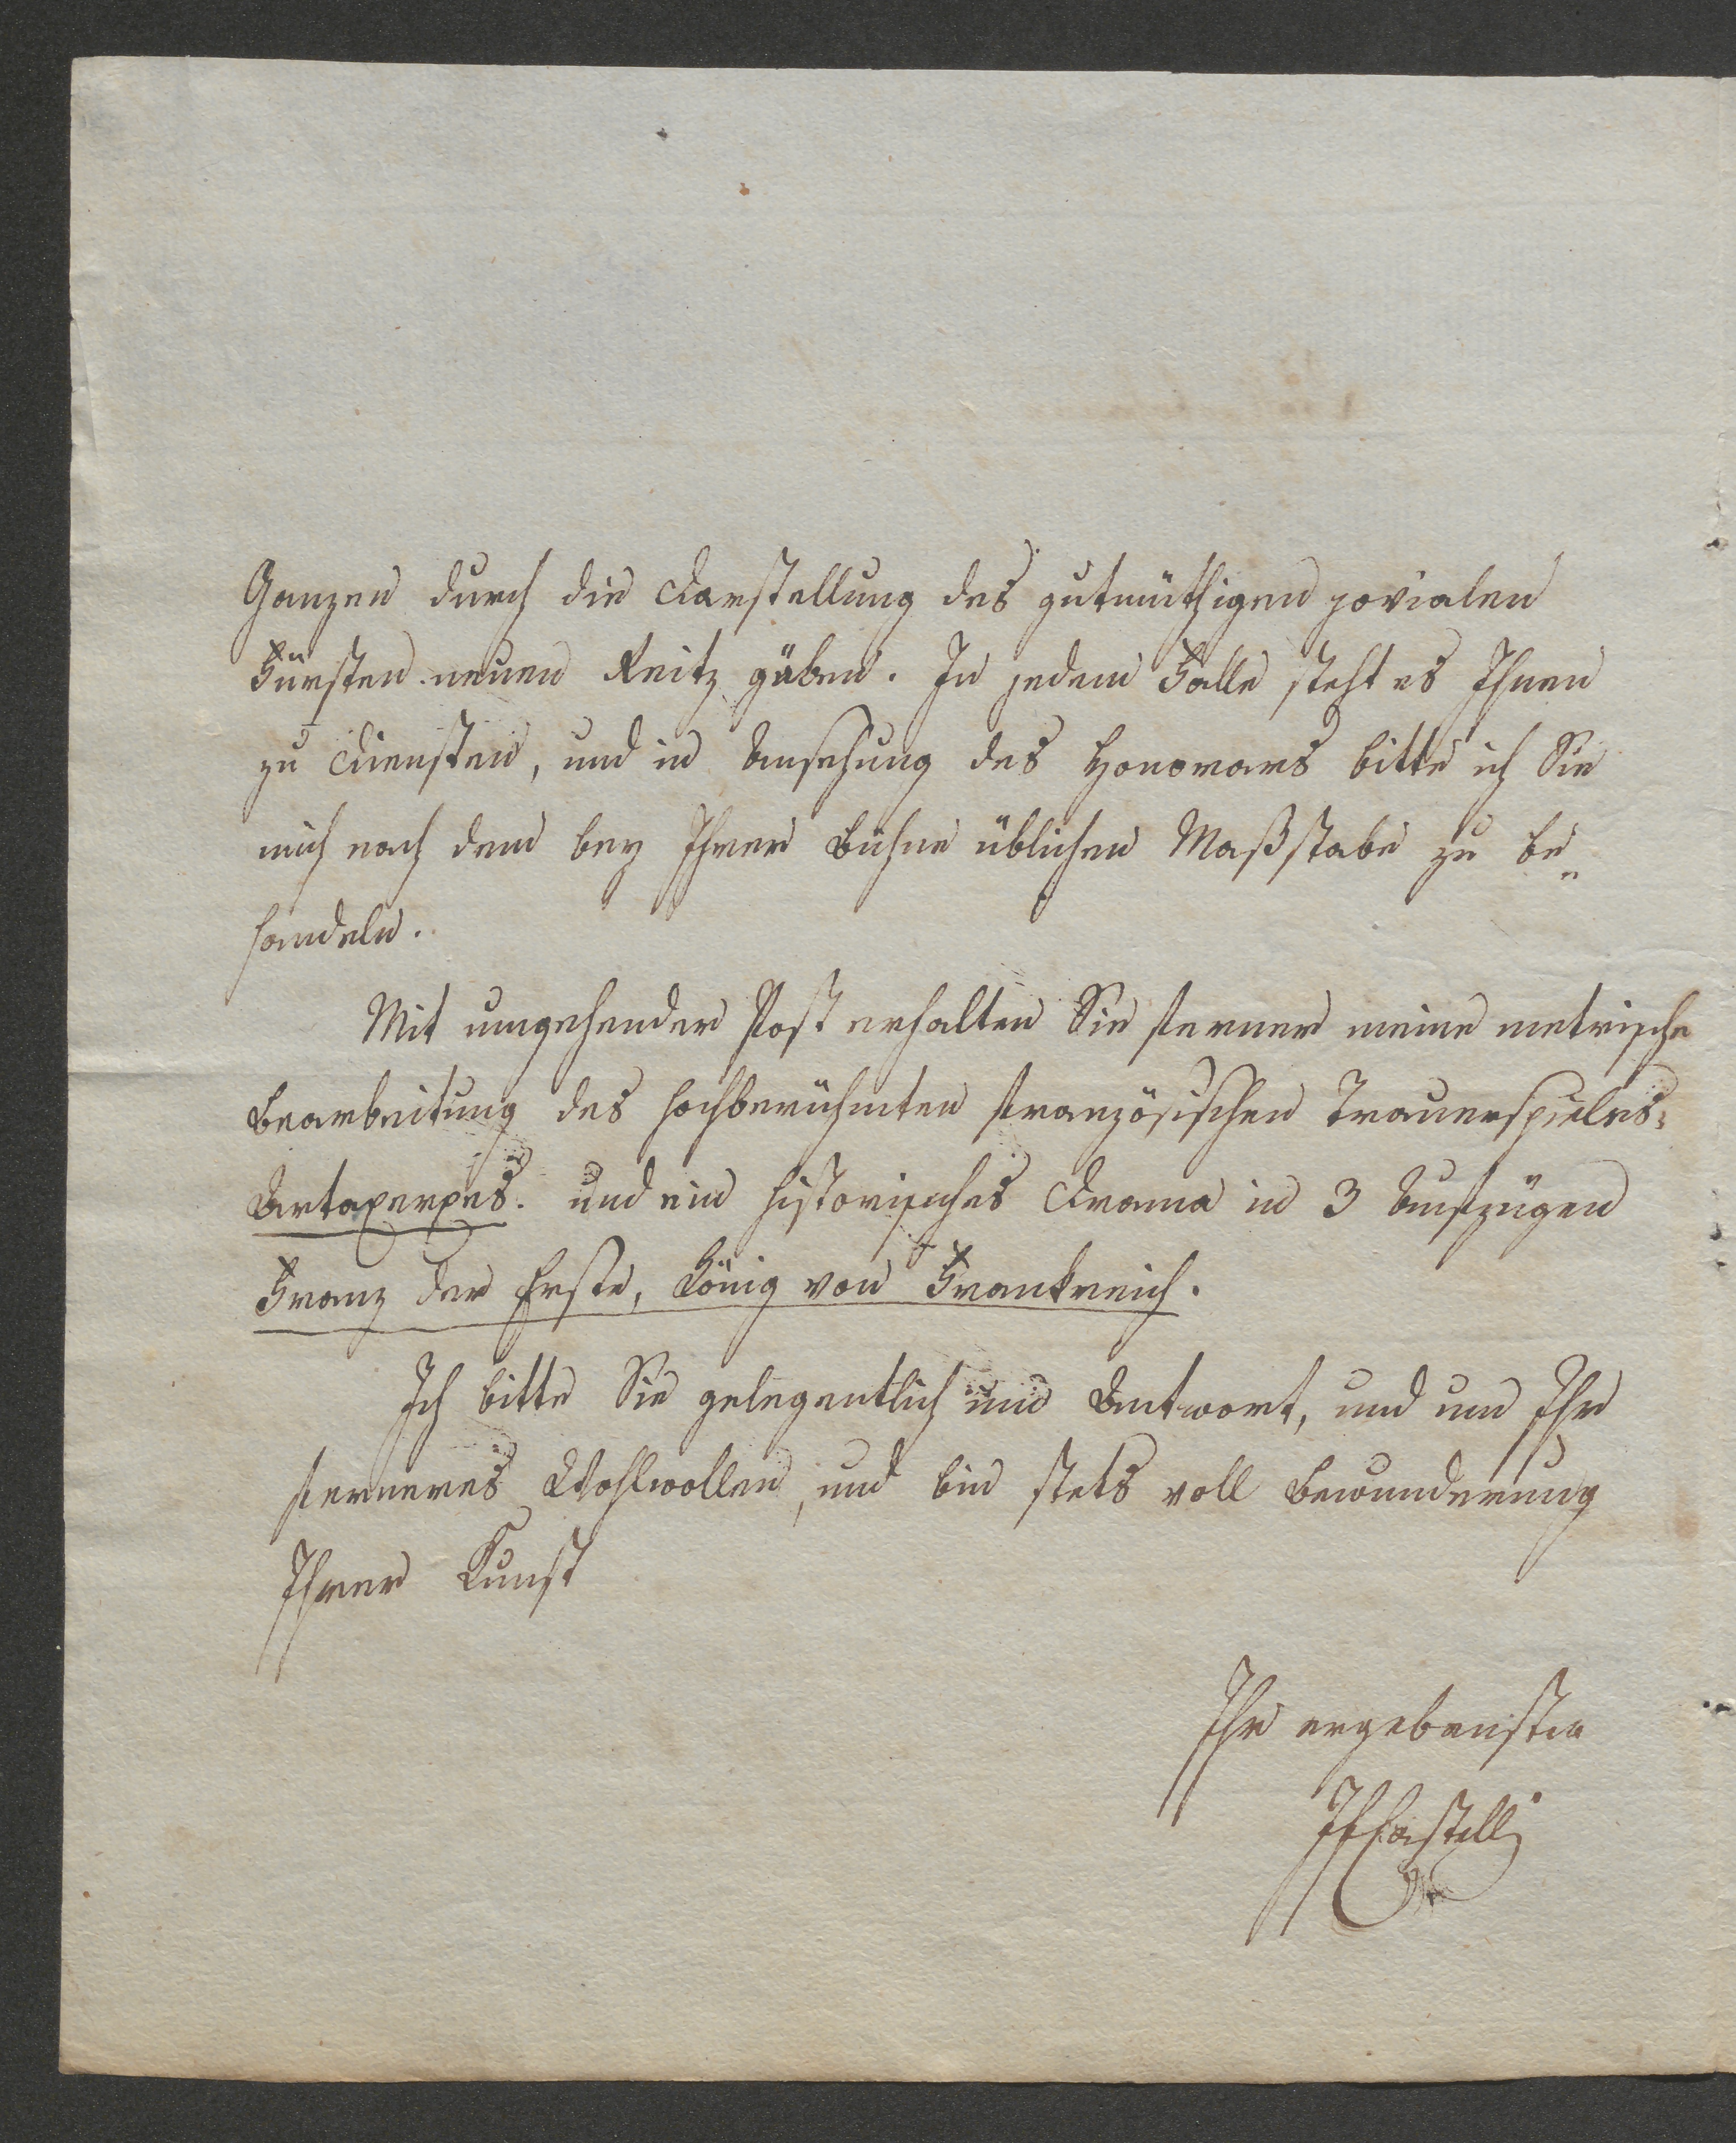 Ganzen durch die Darstellung des gutmüthigen jovialen
Fürsten neuen Reitz gäben. In jedem Falle steht es Ihnen
zu Diensten, und in Ansehung des Honorars bitte ich Sie
mich nach dem bey Ihrer Bühne üblichen Maßstabe zu be„
handeln.
Mit umgehender Post erhalten Sie ferner meine metrische
Bearbeitung des hochberühmten französischen Trauerspieles:
Artaxerxes. und ein historisches Drama in 3 Aufzügen
Franz der Erste, König von Frankreich.
Ich bitte Sie gelegentlich um Antwort, und um Ihr
ferneres Wohlwollen, und bin stets voll Bewunderung
Ihrer Kunst
Ihr ergebenster
IFCastelli